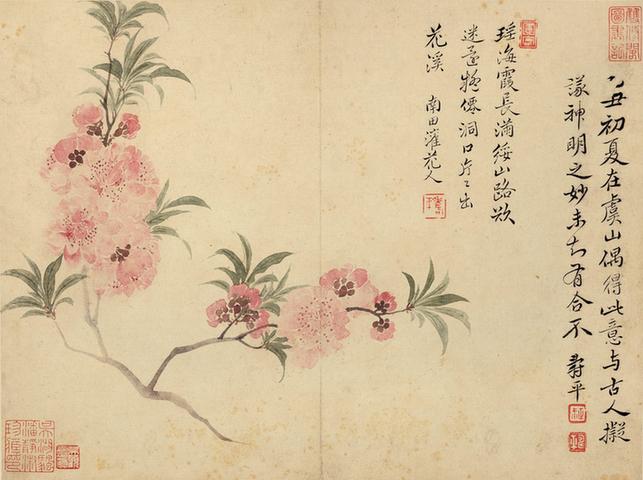 丑初夏在虞山偶得此意与古人擬
議神明之妙未知有合不 壽平
瑤海霞長滿綏山路欲
迷還疑僊洞口片〻出
花溪 南田灌花人